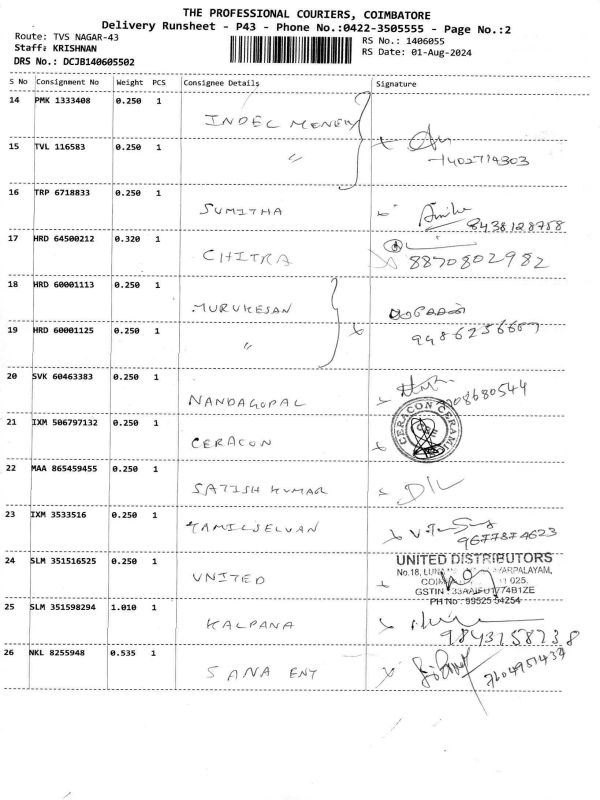 THE PROFESSIONAL COURIERS, COIMBATORE
Delivery Runsheet - P43 - Phone No.:0422-3505555 - Page No.:2
Route: TVS NAGAR-43
RS No.: 1406055
Staff: KRISHNAN
RS Date: 01-Aug-2024
DRS No.: DCJB140605502
S No Consignment No Weight PCS Consignee Details Signature
14 PMK 1333408 0.250 1 INDEL MONEY
15 TVL 116583 0.250 1 〃
16 TRP 6718833 0.250 1 SUMITHA 8438128758
17 HRD 64500212 0.320 1 CHITRA 8870802982
18 HRD 60001113 0.250 1 MURUKESAN
19 HRD 60001125 0.250 1 〃
20 SVK 60463383 0.250 1 NANDAGOPAL
21 IXM 506797132 0.250 1 CERACON CERACON
22 MAA 865459455 0.250 1 SATISH KUMAR
23 IXM 3533516 0.250 1 TAMILSELVAN 9677874623
24 SLM 351516525 0.250 1 UNITED
UNITED DISTRIBUTORS
No.18,
025.
PH No: 99525 54254
25 SLM 351598294 1.010 1 KALPANA 9843758738
26 NKL 8255948 0.535 1 SANA ENT